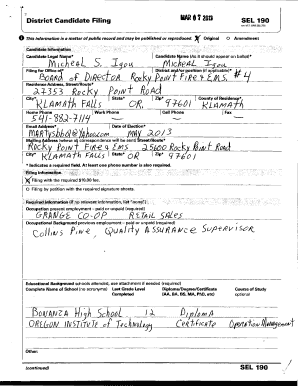 District Candidate Filing
MAR 07 2013
SEL 190
This information is a matter of public record and may be published or reproduced.
Original
Amendment
Candidate Information
Candidate Legal Name*
Candidate Name (As it should appear on ballot)*
Micheal S. Igou
Micheal Igou
Filing for Office of*
District and/or position (if applicable)*
Board of Director
Rocky Point Fire & EMS. #4
Residence Address, Street/Route*
27353 Rocky Point Road
City*
State*
Zip*
County of Residence*
Klamath Falls
OR,
97601
Klamath
Home Phone
Work Phone
Cell Phone
Fax
541-882-7114
Email Address*
Date of Election*
martysbbd@yahoo.com
May 2013
Rocky Point Fire & EMS
25600 Rocky Point Road
City*
State*
Zip*
Klamath Falls
OR.
97601
* Indicates a required field. At least one phone number is also required.
Filing Information
Filing with the required $10.00 fee.
Filing by petition with the required signature sheets.
Required Information (if no relevant information, list "none")
Occupation present employment – paid or unpaid (required)
Grange Co-op
Retail Sales
Occupational Background previous employment – paid or unpaid (required)
Collins Pine, Quality Assurance Supervisor
Educational Background schools attended, use attachment if needed (required)
Complete Name of School (no acronyms)
Last Grade Level Completed
Diploma/Degree/Certificate (AA, BA, BS, MA, PhD, etc)
Course of Study optional
Bonanza High School
12
Diploma
Oregon Institute of Technology
Certificate
Operation Management
Other:
(continued)
SEL 190